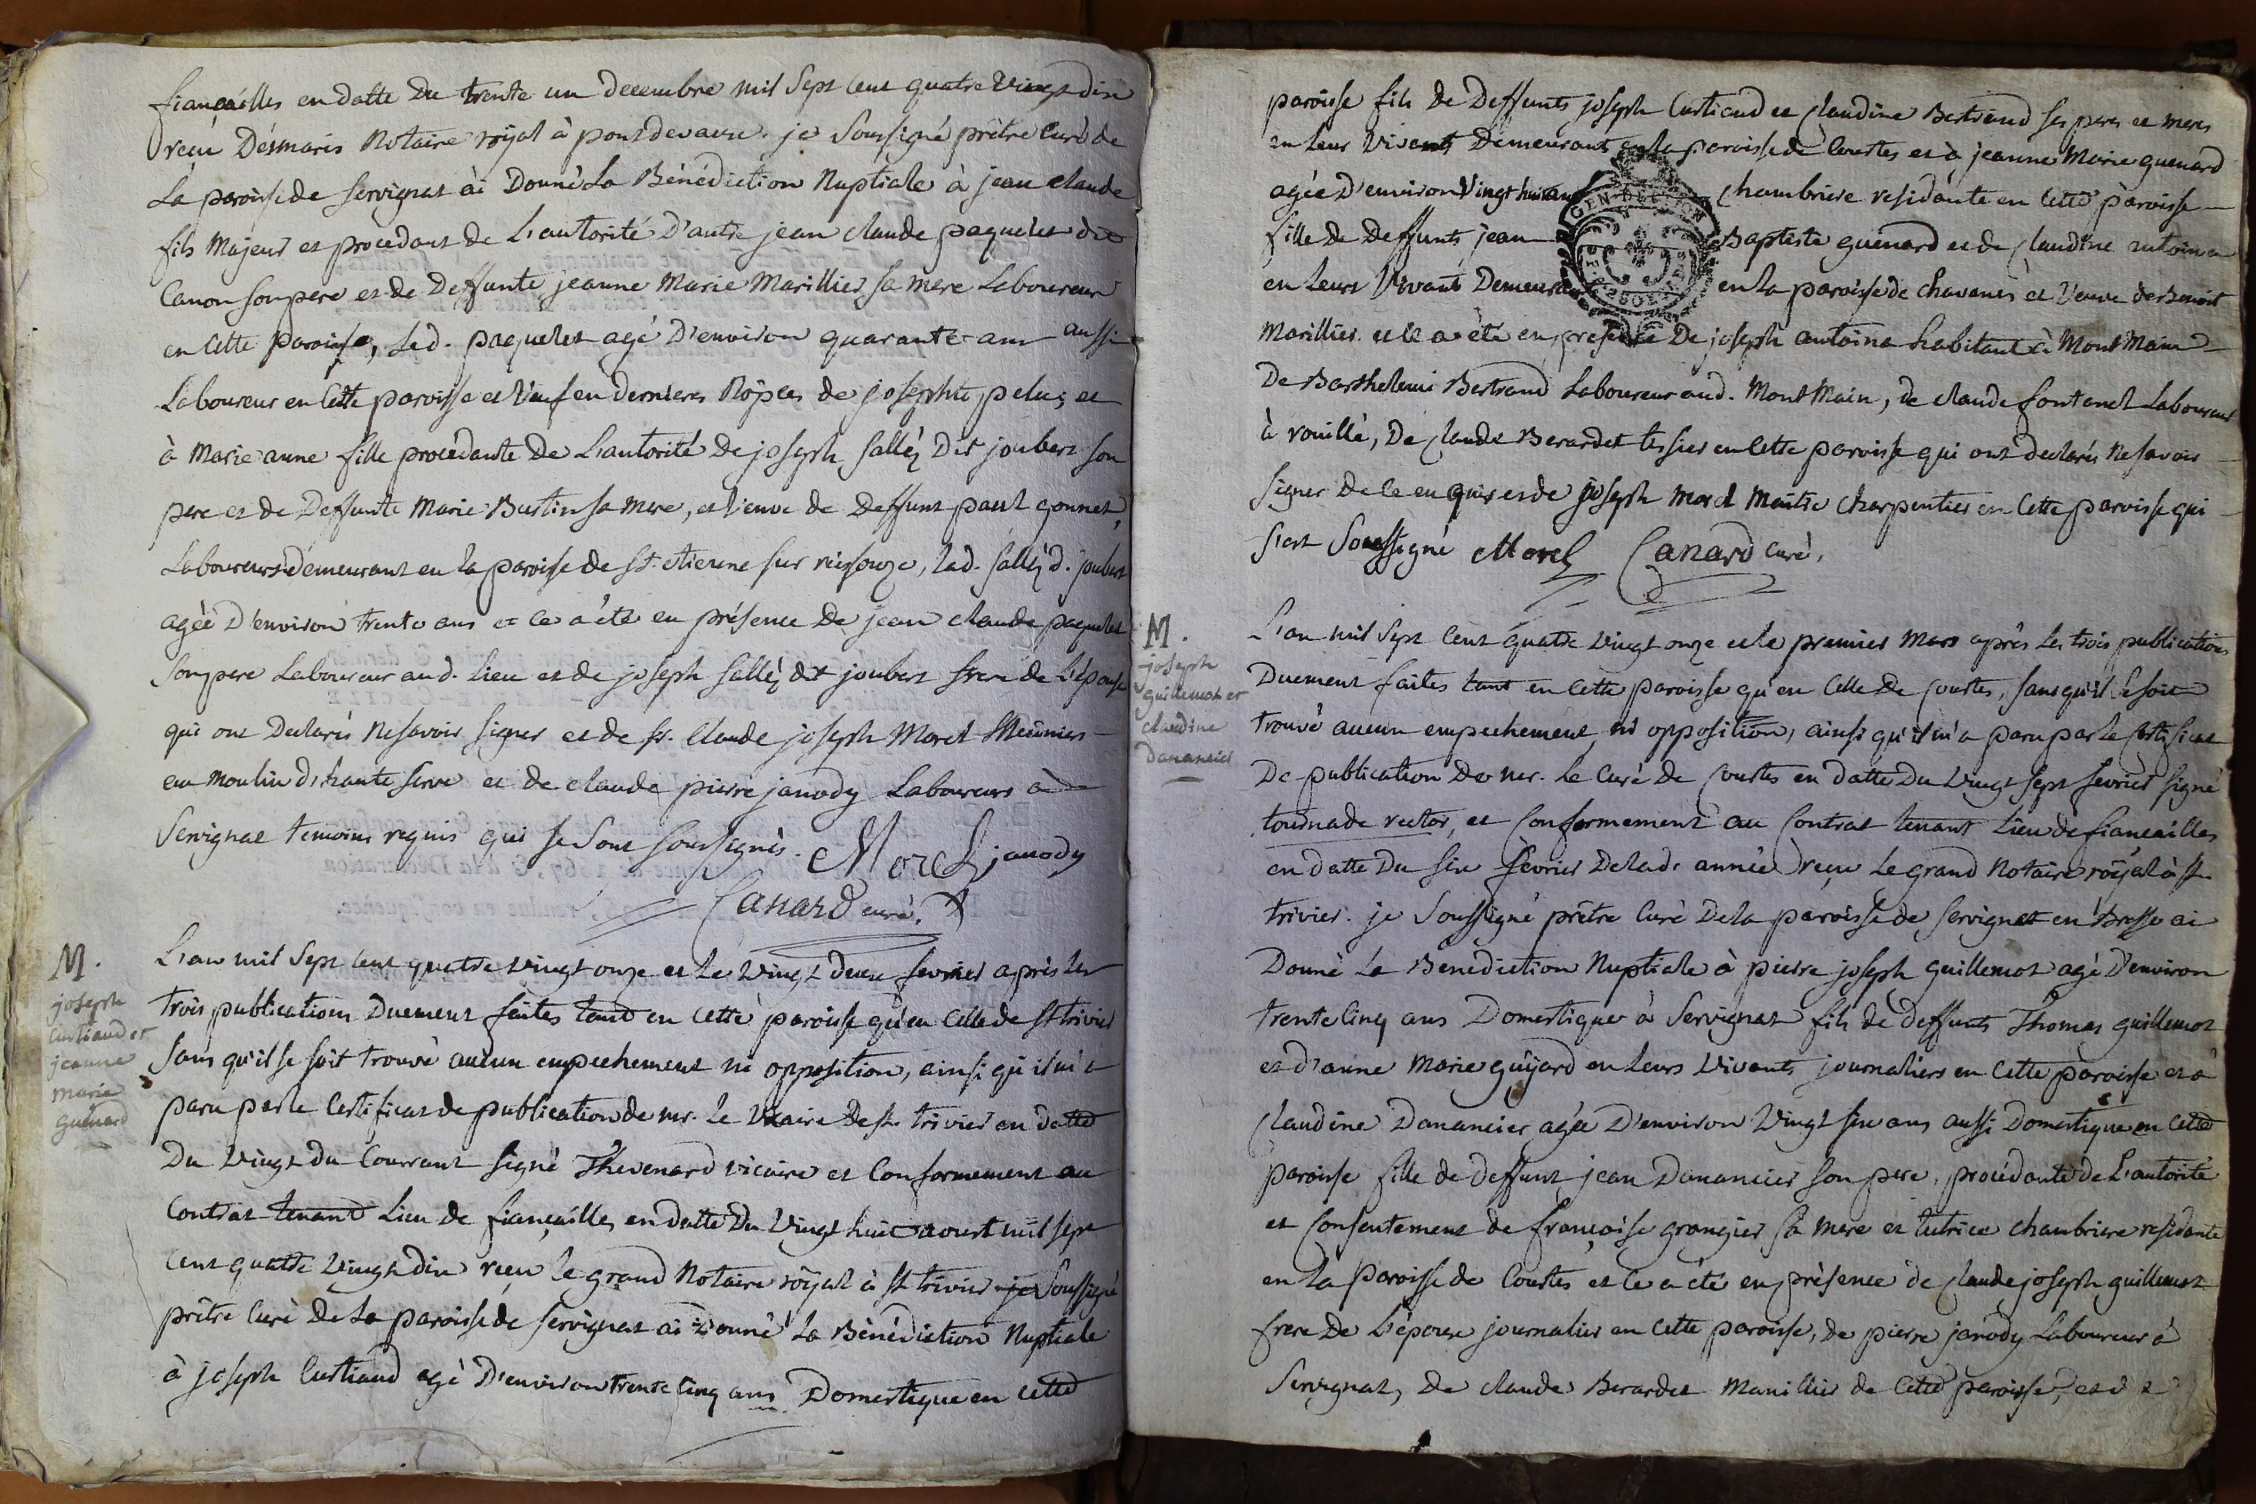 fiancailles en datte du trente un decembre mil sept cent quatre vingt dix
reçu Désmaris Notaire roÿal à pontdevaux. je soussigné prêtre curé de
la paroisse de servignat ai Donné La Bénédiction Nuptiale à jean claude
fils Majeur et procedant de L'autorité D'autre jean claude paquelet dit
Canon son pere et de Deffunte jeanne Marie Marillier sa mere Laboureur
en cette paroisse, led. paquelet agé D'environ quarante ans aussi
Laboureur en cette paroisse et veuf en dernieres Nôpces de josephte pelus, et
à Marie anne fille procédante de L'autorité de joseph salléz Dit joubert son
pere et de Deffunte Marie Burtin sa mere, et veuve de Deffunt paul gonnet,
Laboureurs demeurant en la paroisse de St. etienne sur reissouze, lad. salléz d. joubert
agée D'environ trente ans et ce a été en présence de jean claude paquelet
son pere Laboureur aud. Lieu et de joseph salléz dit joubert frere de L'épouse
qui ont Declarés Ne savoir signer et de sr. Claude joseph Morel Meûnier
au moulin d'haute serve et de claude pierre janody Laboureurs à
Servignat temoins requis qui se sont soussignés. Morel janody
Canard curé.
M.
joseph
Curtiaud et
jeanne
marie
guénard
L'an mil sept cent quatre vingt onze et le vingt deux fevrier après les
trois publications Duement faites tant en cette paroisse qu'en celle de st trivier
sans qu'il se soit trouvé aucun empechement ni opposition, ainsi qu'il m'a
paru par le Certificat de publication de mr. le Vicaire de st. trivier en datte
Du vingt du Courrant signé Thevenard vicaire et Conformement au
Contrat tenant Lieu de fiançailles en datte Du vingt huit aoust mil sept
cent quatre vingt dix reçu le grand Notaire roÿal à st trivier je soussigné
prêtre curé de la paroisse de servignat ai Donné la Bénédiction Nuptiale
à joseph Curtiaud agé D'environ trente cinq ans Domestique en cette
paroisse fils de Deffunts joseph Curtiaud et Claudine Bertrand ses pere et mere
en leur vivants Demeurant en la paroisse de Courtes et à jeanne Marie guenard
agée D'environ vingt huit ans chambriere residante en cette paroisse
fille de Deffunts jean Baptiste guenard et de Claudine antoine
en leurs Vivant Demeurant en la paroisse de chavanes et veuve de benoit
Marillier. et ce a été en presence De joseph antoine habitant à Mont Main
De Barthelemi Bertrand Laboureur aud. Mont Main, de claude fontanel Laboureur
à rouillé, De Claude Berardet tessier en cette paroisse qui ont declarés Ne savoir
signer de ce enquis et de joseph morel Maitre charpentier en Cette paroisse qui
s'est soussigné Morel Canard curé.
M.
joseph
guillemot et
claudine
Danancier
L'an mil sept cent quatre vingt onze et le premier Mars après les trois publications
Duement faites tant en cette paroisse qu'en celle de Courtes, sans qu'il se soit
trouvé aucun empechement ni opposition, ainsi qu'il m'a paru par le Certificat
De publication de mr. le Curé de Courtes en datte Du vingt sept fevrier signé
tournade rector, et Conformement au Contrat tenant Lieu de fiancailles
en datte Du six fevrier De lad. année reçu Le grand Notaire roÿal à st.
trivier. je soussigné prêtre curé De la paroisse de servignat en Bresse ai
Donné La Benediction Nuptiale à pierre joseph guillemot agé D'environ
trente Cinq ans Domestique à Servignat fils de deffunts Thomas guillemot
et d'anne Marie guÿard en leurs vivants journaliers en cette paroisse et à
Claudine Danancier agée D'environ vingt six ans aussi Domestique en cette
paroisse fille de deffunt jean Danancier son pere, procédante de L'autorité
et Consentement de françoise grangier sa mere et tutrice chambriere residante
en la paroisse de Courtes et ce a été en présence de Claude joseph guillemot
frere De L'époux journalier en cette paroisse, de pierre janody Laboureur à
Servignat, De claude Berardet Manillier de cette paroisse, et d